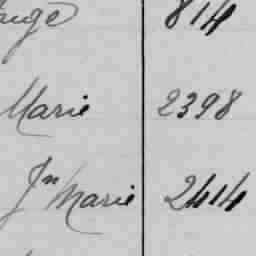 814
Marie 2398
Jn Marie 2414